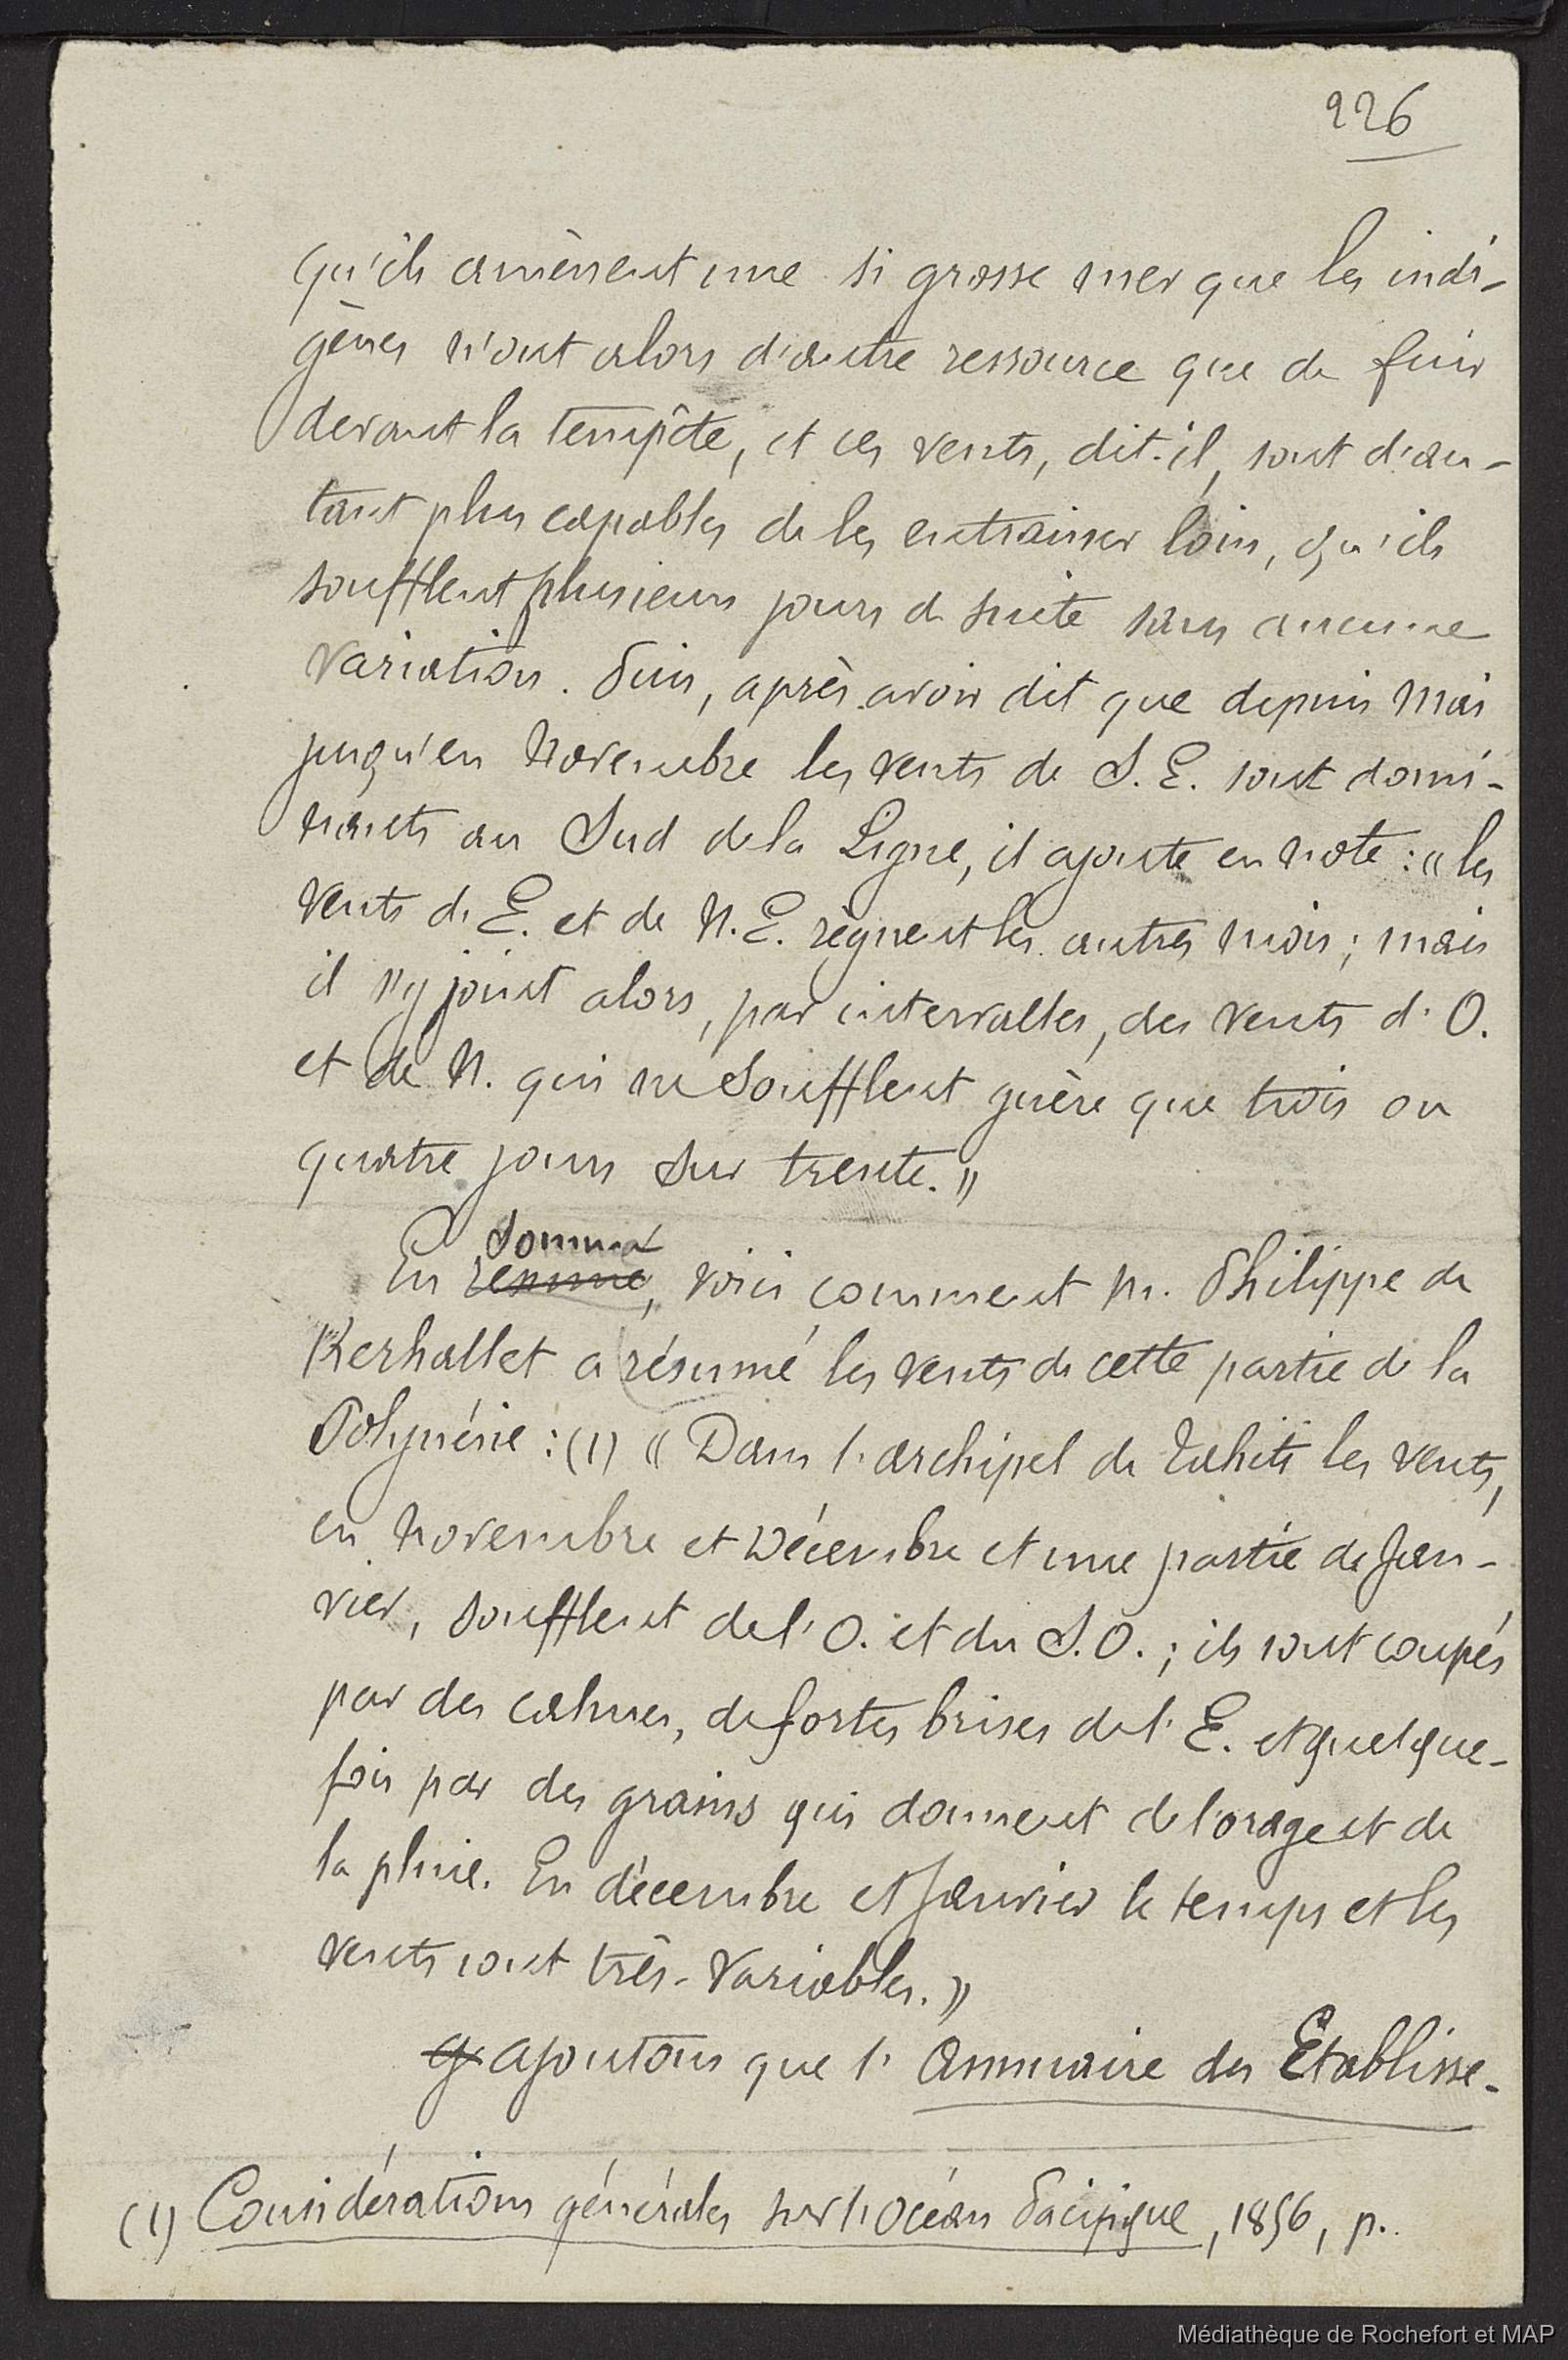 226
qu'ils amènent une si grosse mer que les indi-
gènes n'ont alors d'autre ressource que de fuir
devant la tempête, et ces vents, dit-il, sont d'au-
tant plus capables de les entrainer loin, qu'ils
soufflent plusieurs jours de suite sans aucune
variation. Puis, après avoir dit que depuis Mai
jusqu'en Novembre les vents de S. E. sont domi-
nants au Sud de la Ligne, il ajoute en note : « les
vents d'E. et de N. E. règnent les autres mois ; mais
il s'y joint alors, par intervalles, des vents d'O.
et de N. qui ne soufflent guère que trois ou
quatre jours sur trente. »
somme
En résumé, voici comment M. Philippe de
Kerhallet a résumé les vents de cette partie de la
Polynésie : (1) « Dans l'archipel de Tahiti les vents,
en Novembre et Décembre et une partie de Jan-
vier, soufflent de l'O. et du S. O. ; ils sont coupés
par des calmes, de fortes brises de l'E. et quelque-
fois par des grains qui donnent de l'orage et de
la pluie. En décembre et Janvier le temps et les
vents sont très-variables. »
ajoutons que l'Annuaire des Etablisse-
(1) Considérations générales sur l'Océan Pacifique, 1856, p.
Médiathèque de Rochefort et MAP